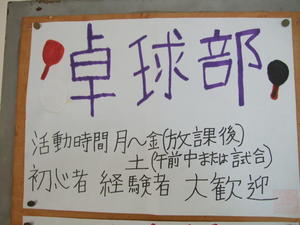 卓球部
活動時間 月〜金(放課後)
土(午前中または試合)
初心者 経験者 大歓迎